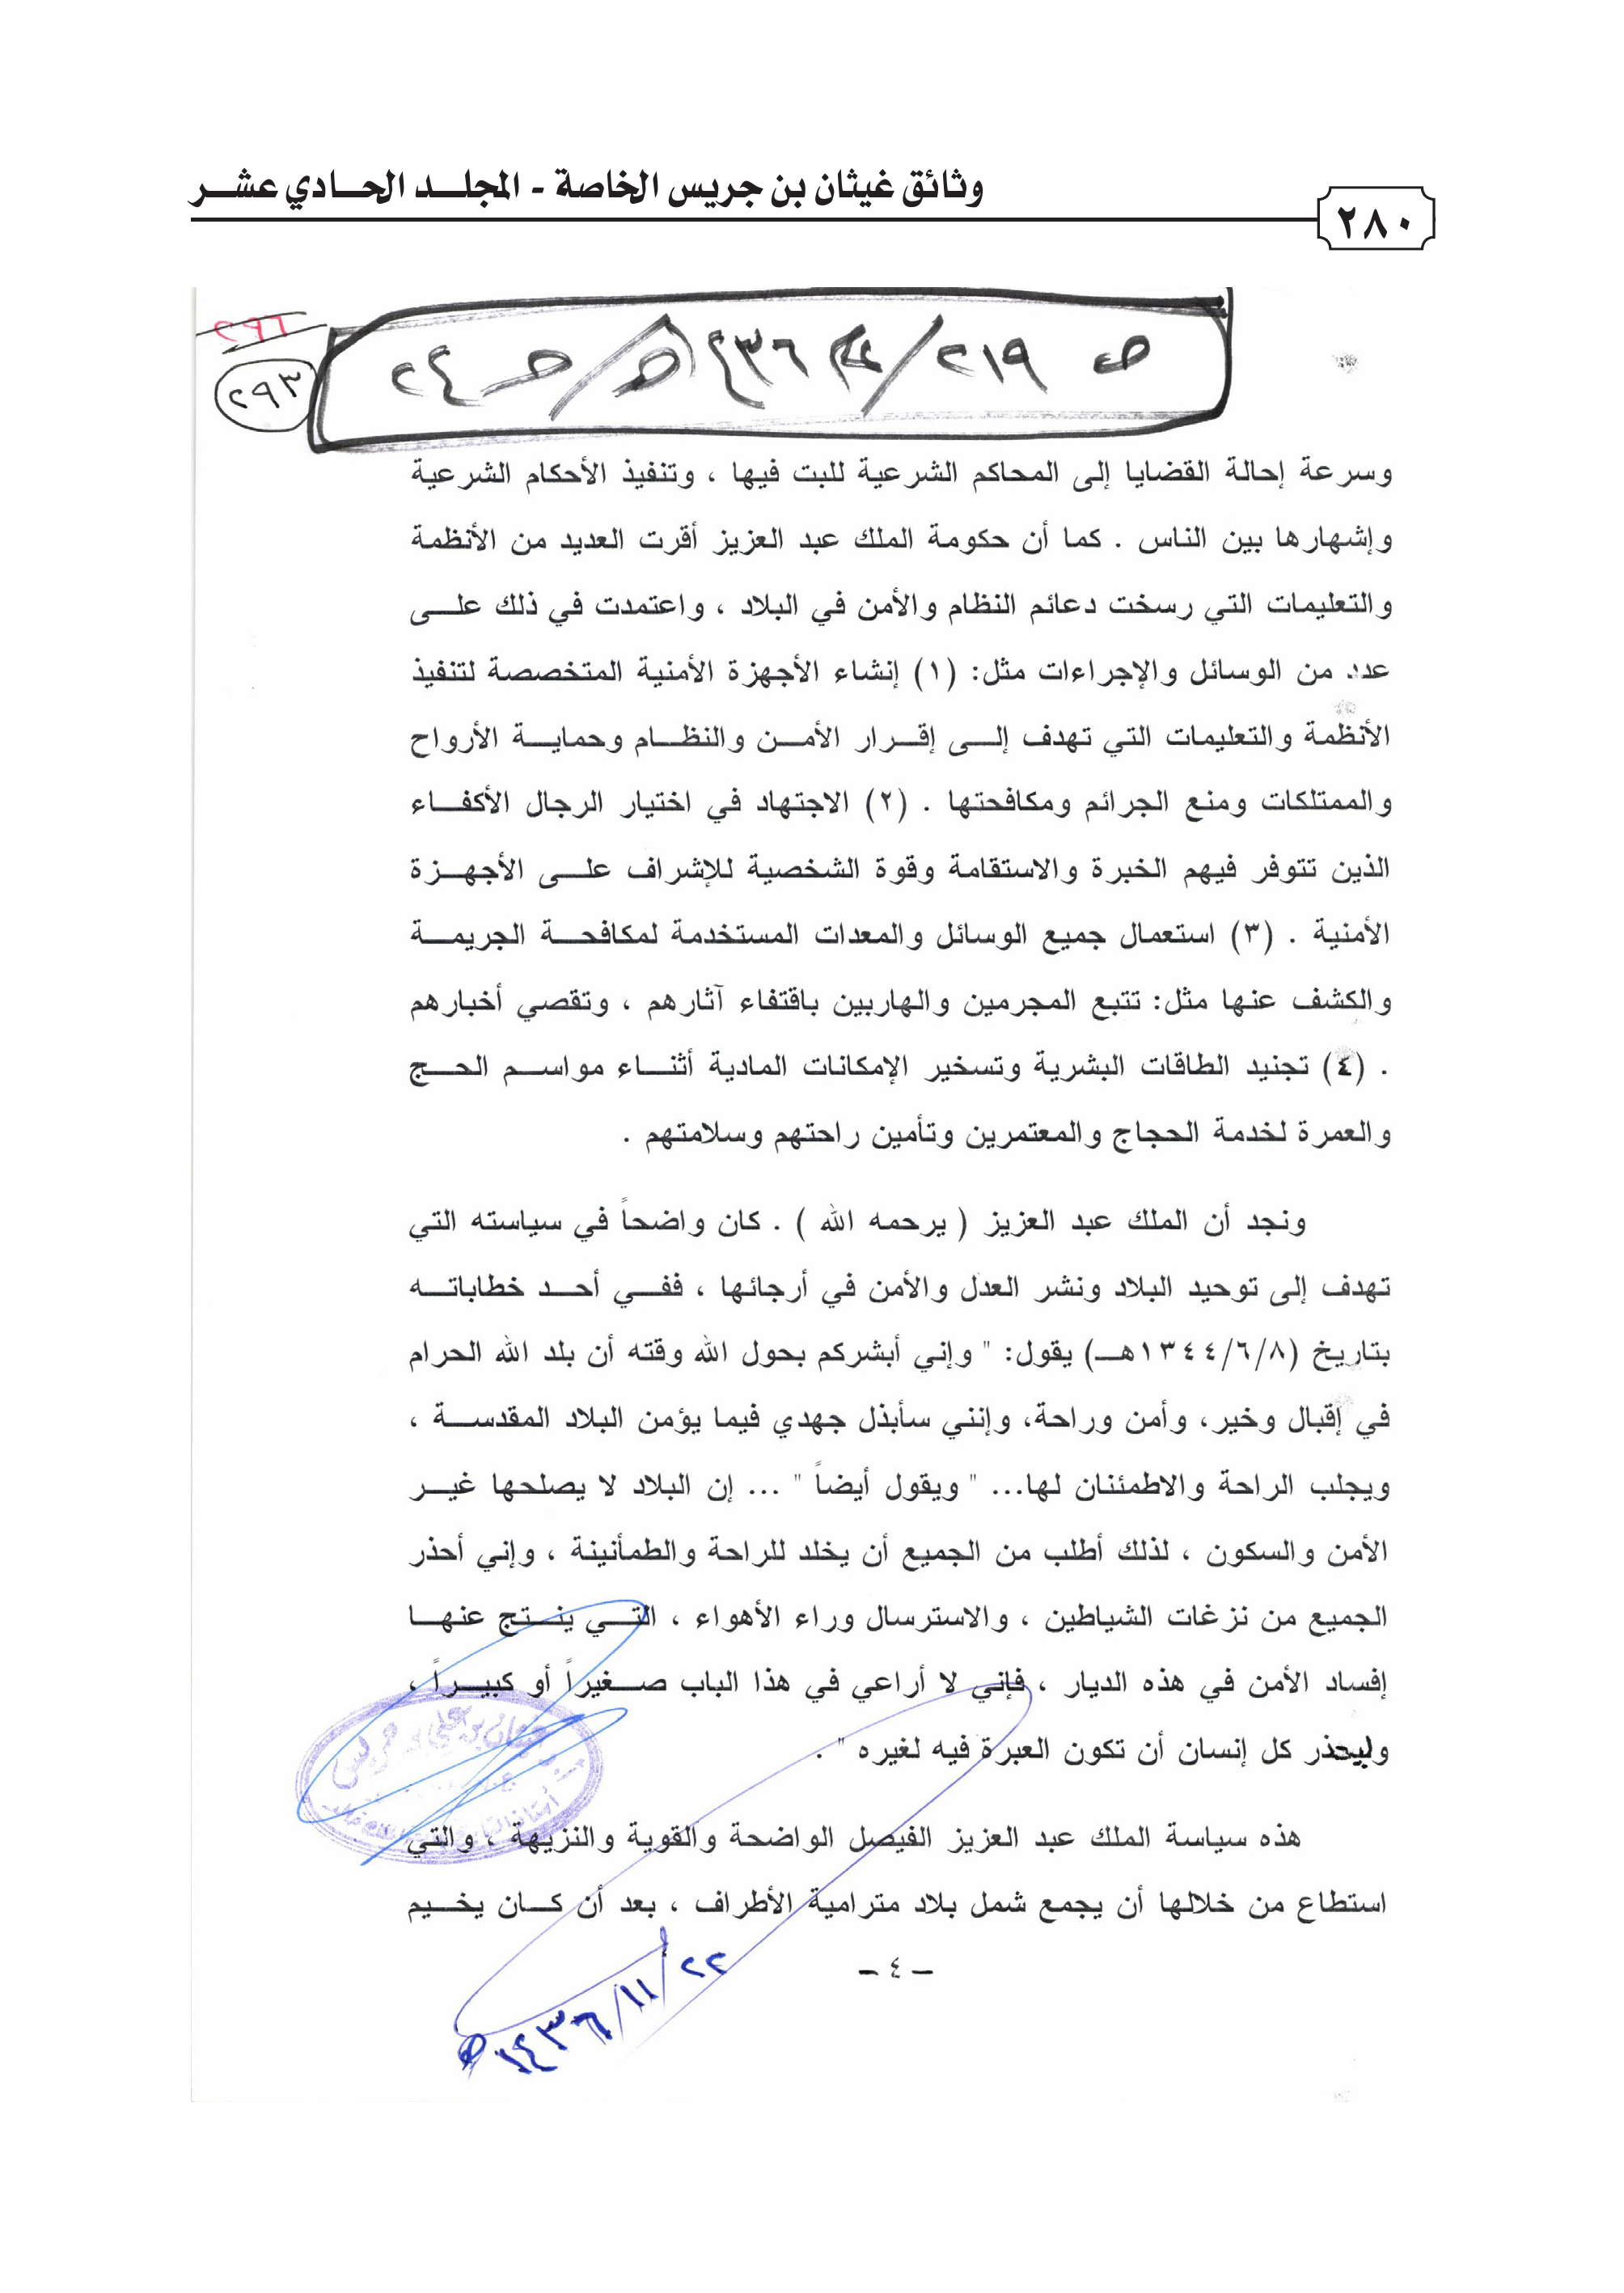 وثائق غيثان بن جريس الخاصة - المجلد الحادي عشر
٢٨٠
٢٩٦
٢٩٣
ص ٢١٩ / ١٤٣٦هـ / حـ ٢٤
وسرعة إحالة القضايا إلى المحاكم الشرعية للبت فيها ، وتنفيذ الأحكام الشرعية
وإشهارها بين الناس . كما أن حكومة الملك عبد العزيز أقرت العديد من الأنظمة
والتعليمات التي رسخت دعائم النظام والأمن في البلاد ، واعتمدت في ذلك على
عدد من الوسائل والإجراءات مثل: (١) إنشاء الأجهزة الأمنية المتخصصة لتنفيذ
الأنظمة والتعليمات التي تهدف إلى إقرار الأمن والنظام وحماية الأرواح
والممتلكات ومنع الجرائم ومكافحتها . (٢) الاجتهاد في اختيار الرجال الأكفاء
الذين تتوفر فيهم الخبرة والاستقامة وقوة الشخصية للإشراف على الأجهزة
الأمنية . (٣) استعمال جميع الوسائل والمعدات المستخدمة لمكافحة الجريمة
والكشف عنها مثل: تتبع المجرمين والهاربين باقتفاء آثارهم ، وتقصي أخبارهم
. (٤) تجنيد الطاقات البشرية وتسخير الإمكانات المادية أثناء مواسم الحج
والعمرة لخدمة الحجاج والمعتمرين وتأمين راحتهم وسلامتهم .
ونجد أن الملك عبد العزيز ( يرحمه الله ) . كان واضحاً في سياسته التي
تهدف إلى توحيد البلاد ونشر العدل والأمن في أرجائها ، ففي أحد خطاباته
بتاريخ (١٣٤٤/٦/٨هـ) يقول: " وإني أبشركم بحول الله وقته أن بلد الله الحرام
في إقبال وخير، وأمن وراحة، وإنني سأبذل جهدي فيما يؤمن البلاد المقدسة ،
ويجلب الراحة والاطمئنان لها... " ويقول أيضاً " ... إن البلاد لا يصلحها غير
الأمن والسكون ، لذلك أطلب من الجميع أن يخلد للراحة والطمأنينة ، وإني أحذر
الجميع من نزغات الشياطين ، والاسترسال وراء الأهواء ، التي ينتج عنها
إفساد الأمن في هذه الديار ، فإني لا أراعي في هذا الباب صغيراً أو كبيراً ،
وليحذر كل إنسان أن تكون العبرة فيه لغيره " .
هذه سياسة الملك عبد العزيز الفيصل الواضحة والقوية والنزيهة ، والتي
استطاع من خلالها أن يجمع شمل بلاد مترامية الأطراف ، بعد أن كان يخيم
– ٤ –
٢٢ / ١١ / ١٤٣٦هـ